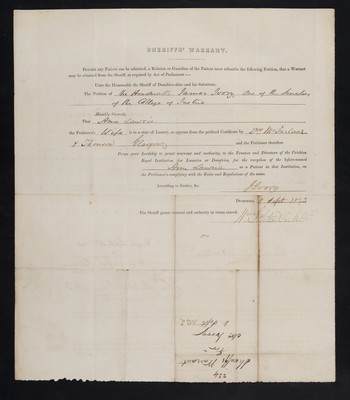 SHERIFFS' WARRANT.
Before any Patient can be admitted, a Relation or Guardian of the Patient must subscribe the following Petition, that a Warrant
may be obtained from the Sheriff, as required by Act of Parliament:—
Unto the Honourable the Sheriff of Dumfries-shire and his Substitutes.
The Petition of the Honourable James Ivory One of the Senators
of the College of Justice
Humbly Sheweth,
That Ann Lawrie
the Petitioner's Wife is in a state of Lunacy, as appears from the prefixed Certificate by Drs
& Glasgow and the Petitioner therefore
Prays your lordship to grant warrant and authority, to the Trustees and Directors of the Crichton
Royal Institution for Lunatics at Dumfries, for the reception of the before-named
Ann Lawrie as a Patient in that Institution, on
the Petitioner's complying with the Rules and Regulations of the same.
According to Justice, &c.
J Ivory
Dumfries, 8 Sept 1853
The Sheriff grants warrant and authority in terms craved.
234
Sheriff's Warrant
for
Mrs Ivory
8 Sept